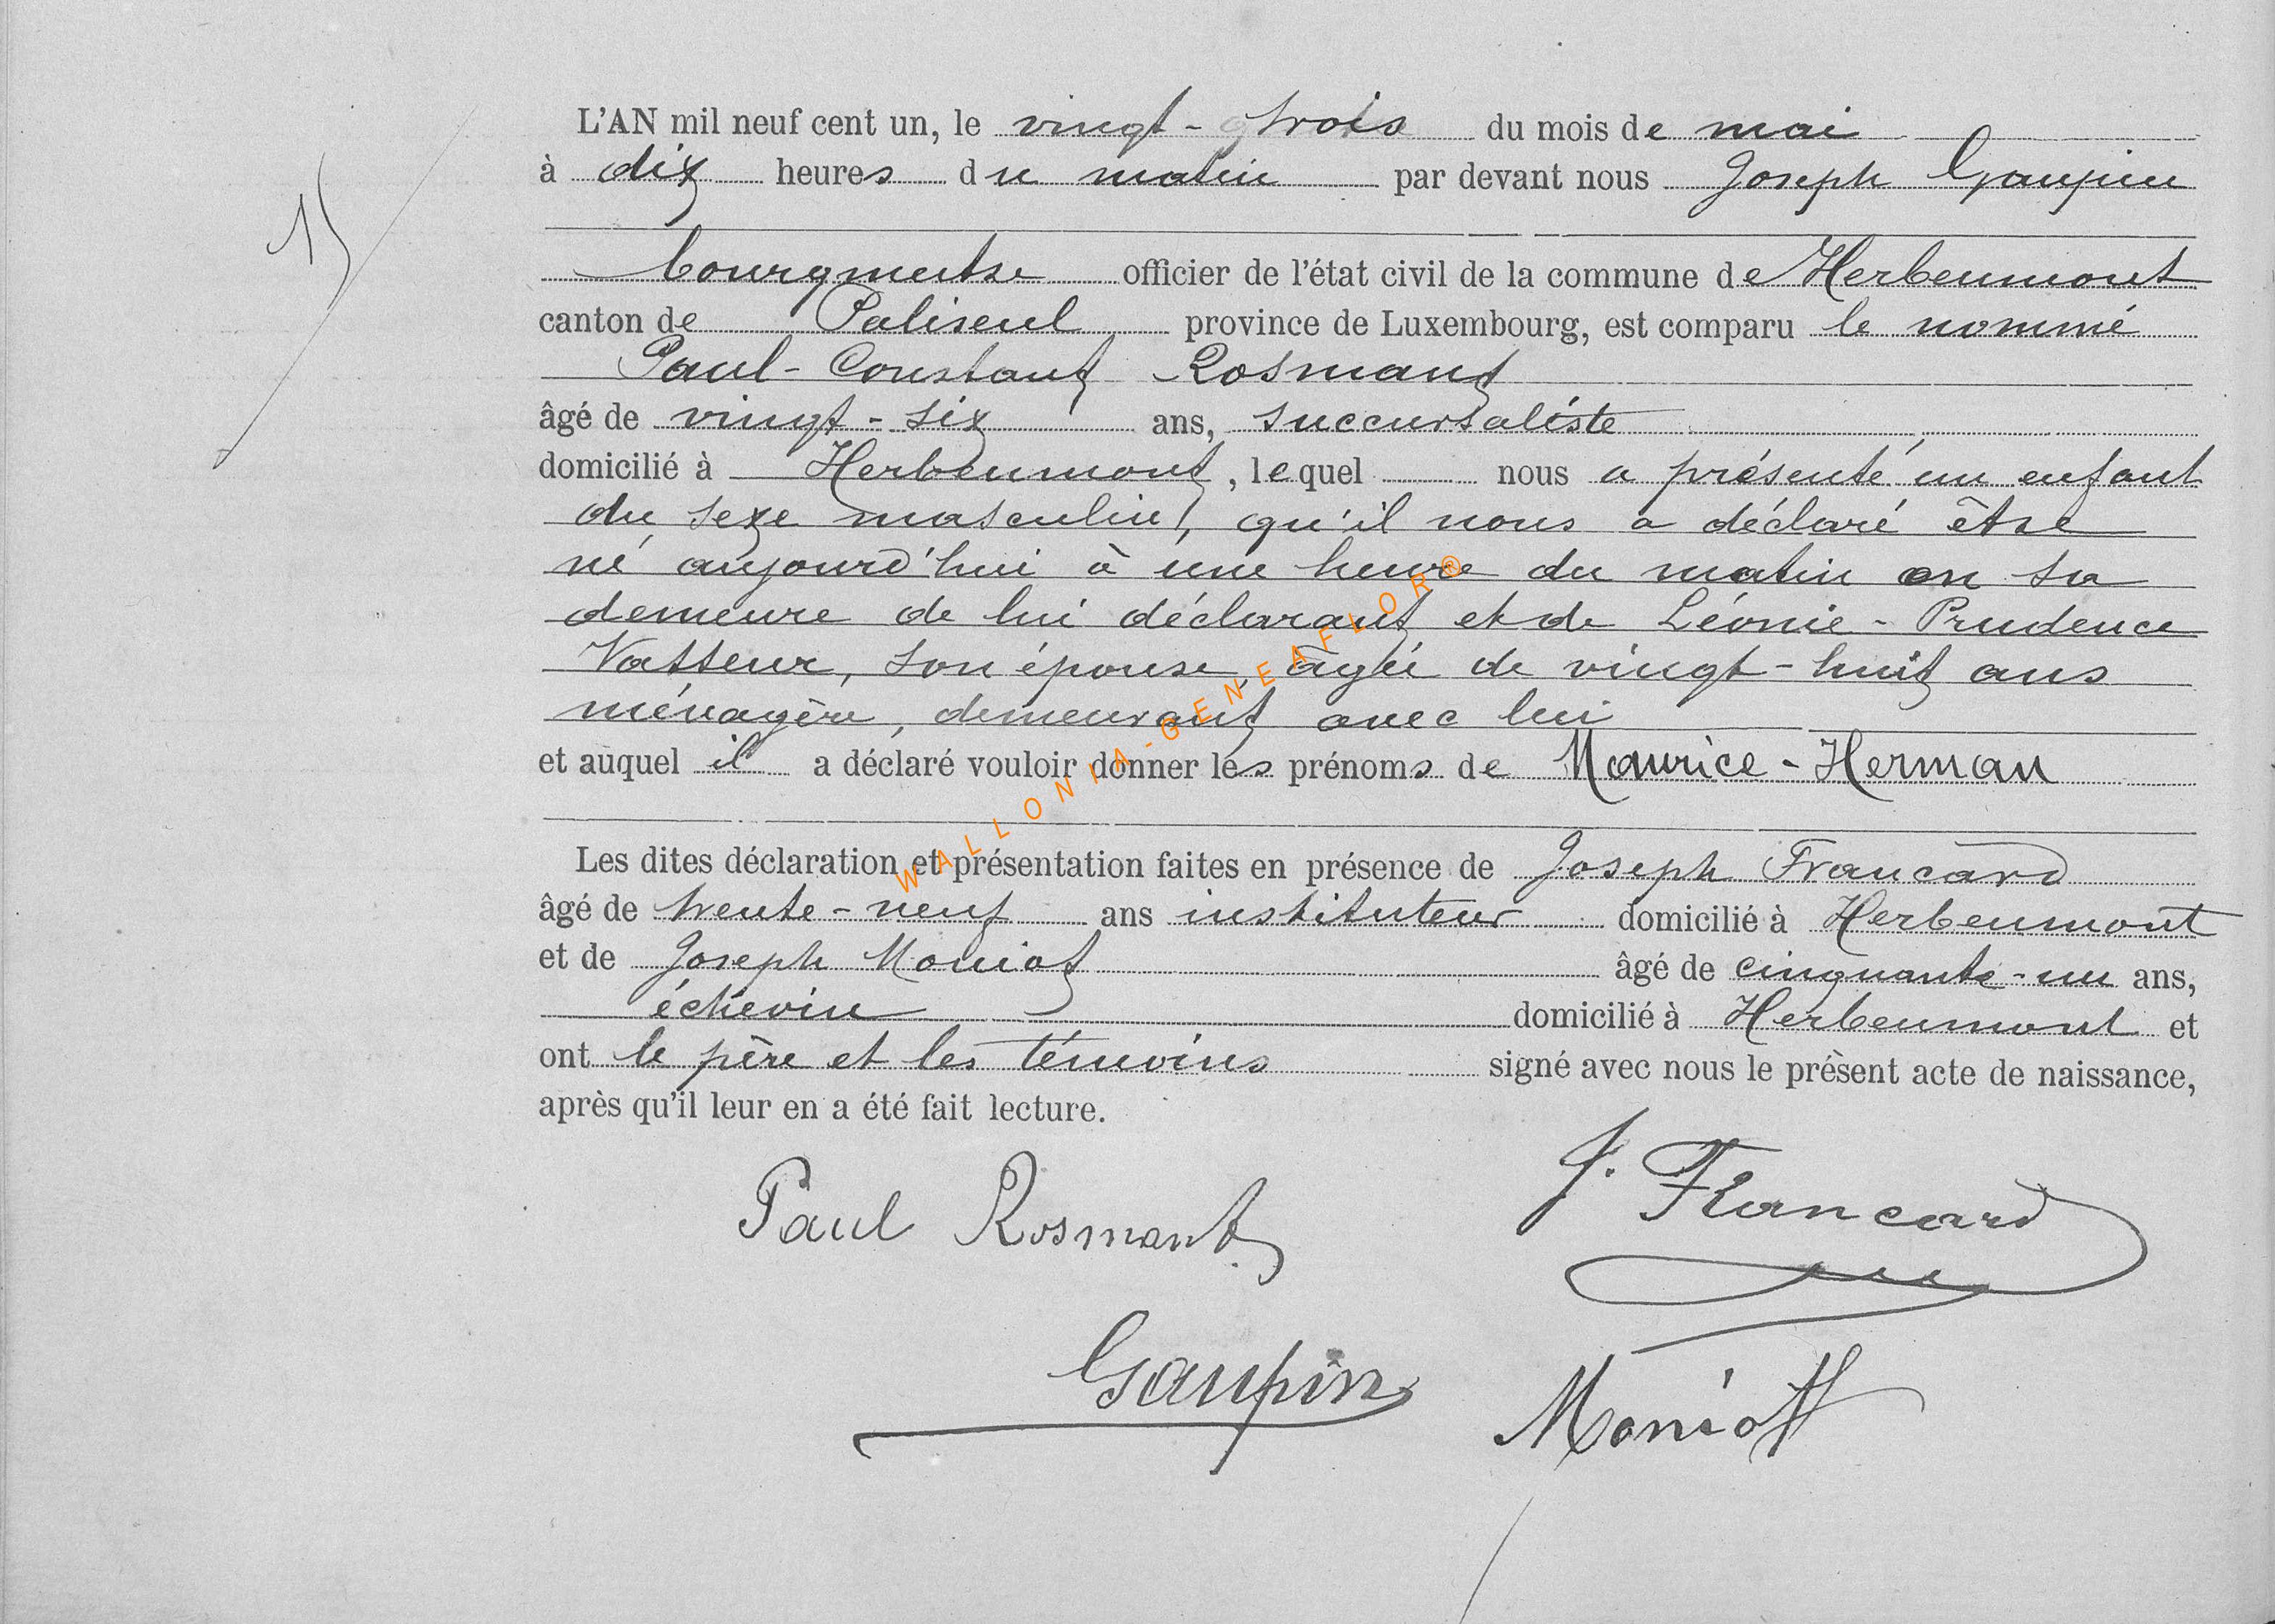 L'AN mil neuf cent un, le vingt-trois du mois de mai
à dix heures du matin par devant nous Joseph Gaupin
bourgmestre officier de l'état civil de la commune de Herbeumont
canton de Paliseul province de Luxembourg, est comparu le nommé
Paul-Constant Rosmant
âgé de vingt-six ans, succursaliste
domicilié à Herbeumont, lequel nous a présenté un enfant
du sexe masculin, qu'il nous a déclaré être
né aujourd'hui à une heure du matin en sa
demeure de lui déclarant et de Léonie-Prudence
Vasseur, son épouse, âgée de vingt-huit ans
ménagère, demeurant avec lui
et auquel il a déclaré vouloir donner les prénoms de Maurice-Herman
Les dites déclaration et présentation faites en présence de Joseph Francard
âgé de trente-neuf ans instituteur domicilié à Herbeumont
et de Joseph Moniot âgé de cinquante-un ans,
échevin domicilié à Herbeumont et
ont le père et les témoins signé avec nous le présent acte de naissance,
après qu'il leur en a été fait lecture.
Paul Rosmant
J. Francard
Gaupin
Moniot
WALLONIA-GENEAFLOR®